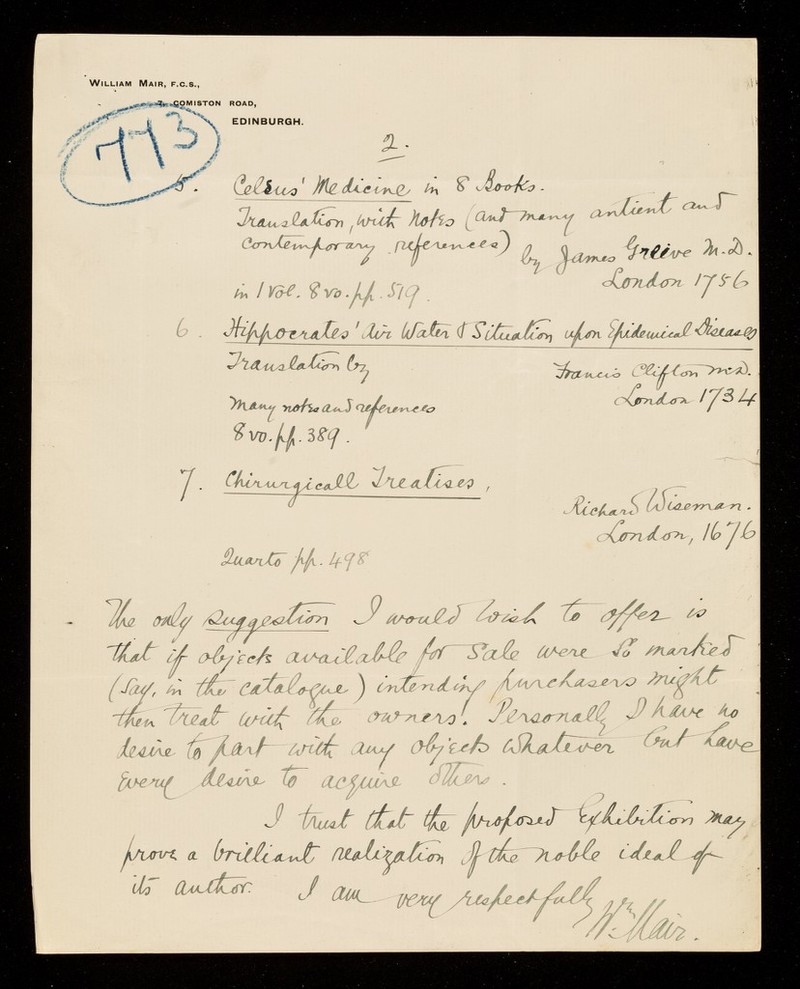 WILLIAM MAIR, F.C.S.,
7, COMISTON ROAD,
EDINBURGH.
773
2.
5. Celsus' Medicine in 8 Books.
Translation, with Notes (and many antient and
contemporary references) by James Greive M.D.
London 1756
in 1 Vol. 8vo. pp. 519.
6. Hippocrates' Air Water & Situation upon Epidemical Diseases
Translation by Francis Clifton M.D.
London 1734
Many notes and references
8vo. pp. 389.
7. Chirurgicall Treatises,
Richard Wiseman.
London, 1676
Quarto pp. 498
The only suggestion I would wish to offer is
that if objects available for Sale were so marked
(Say, in the catalogue) intending purchasers might
then treat with the owners. Personally I have no
desire to part with any objects whatever but have
every desire to acquire others.
I trust that the proposed Exhibition may
prove a brilliant realization of the noble ideal of
its author. I am very respectfully
Wm. Mair.